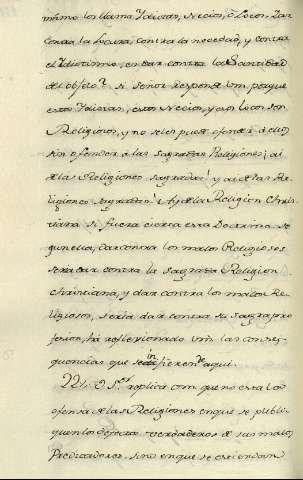 mismo los llama Ydiotas, Necios, ò Locos. Dar
contra la Locura, contra la necedad, y contra
el Ydiotismo, es dar contra la Santidad
del objeto? Si señor responde Vm. porque
estos Ydiotas, estos Necios, y estos Locos son
Religiosos, y no se les puede ofender à ellos,
sin ofender à las sagradas Religiones; ai
de las Religiones sagradas! y ai de las Re-
ligiones sagradas! Ay de la Religion Chris-
tiana si fuera cierta esta Doctrina. Se-
gun ella, dar contra los malos Religiosos
sera dar contra la Sagrada Religion
Christiana, y dar contra los malos Re-
ligiosos, seria dar contra su sagrada pro
fesion, ha reflexionado Vm. las conse-
quencias que se infieren de aqui.
22. O Sr. replica Vm. que no esta la
ofensa de las Religiones en que se publi-
quen los defectos verdaderos de sus malos
Predicadores, sino en que se extiendan